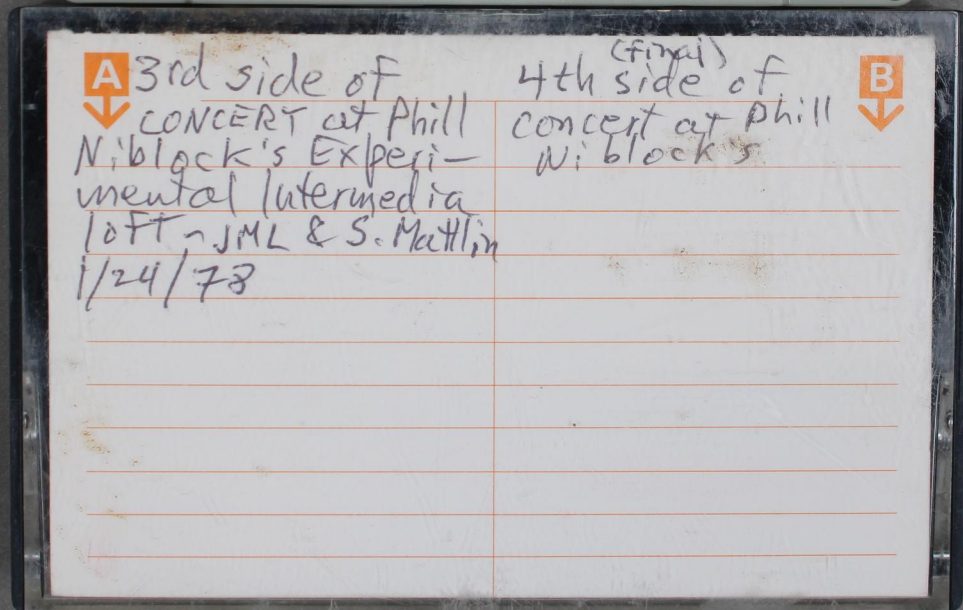 A
3rd side of
CONCERT at Phill
Niblock's Experi-
mental Intermedia
loFT - JML & S. Mattlin
1/24/78
B
(final)
4th side of
concert at Phill
Niblock's